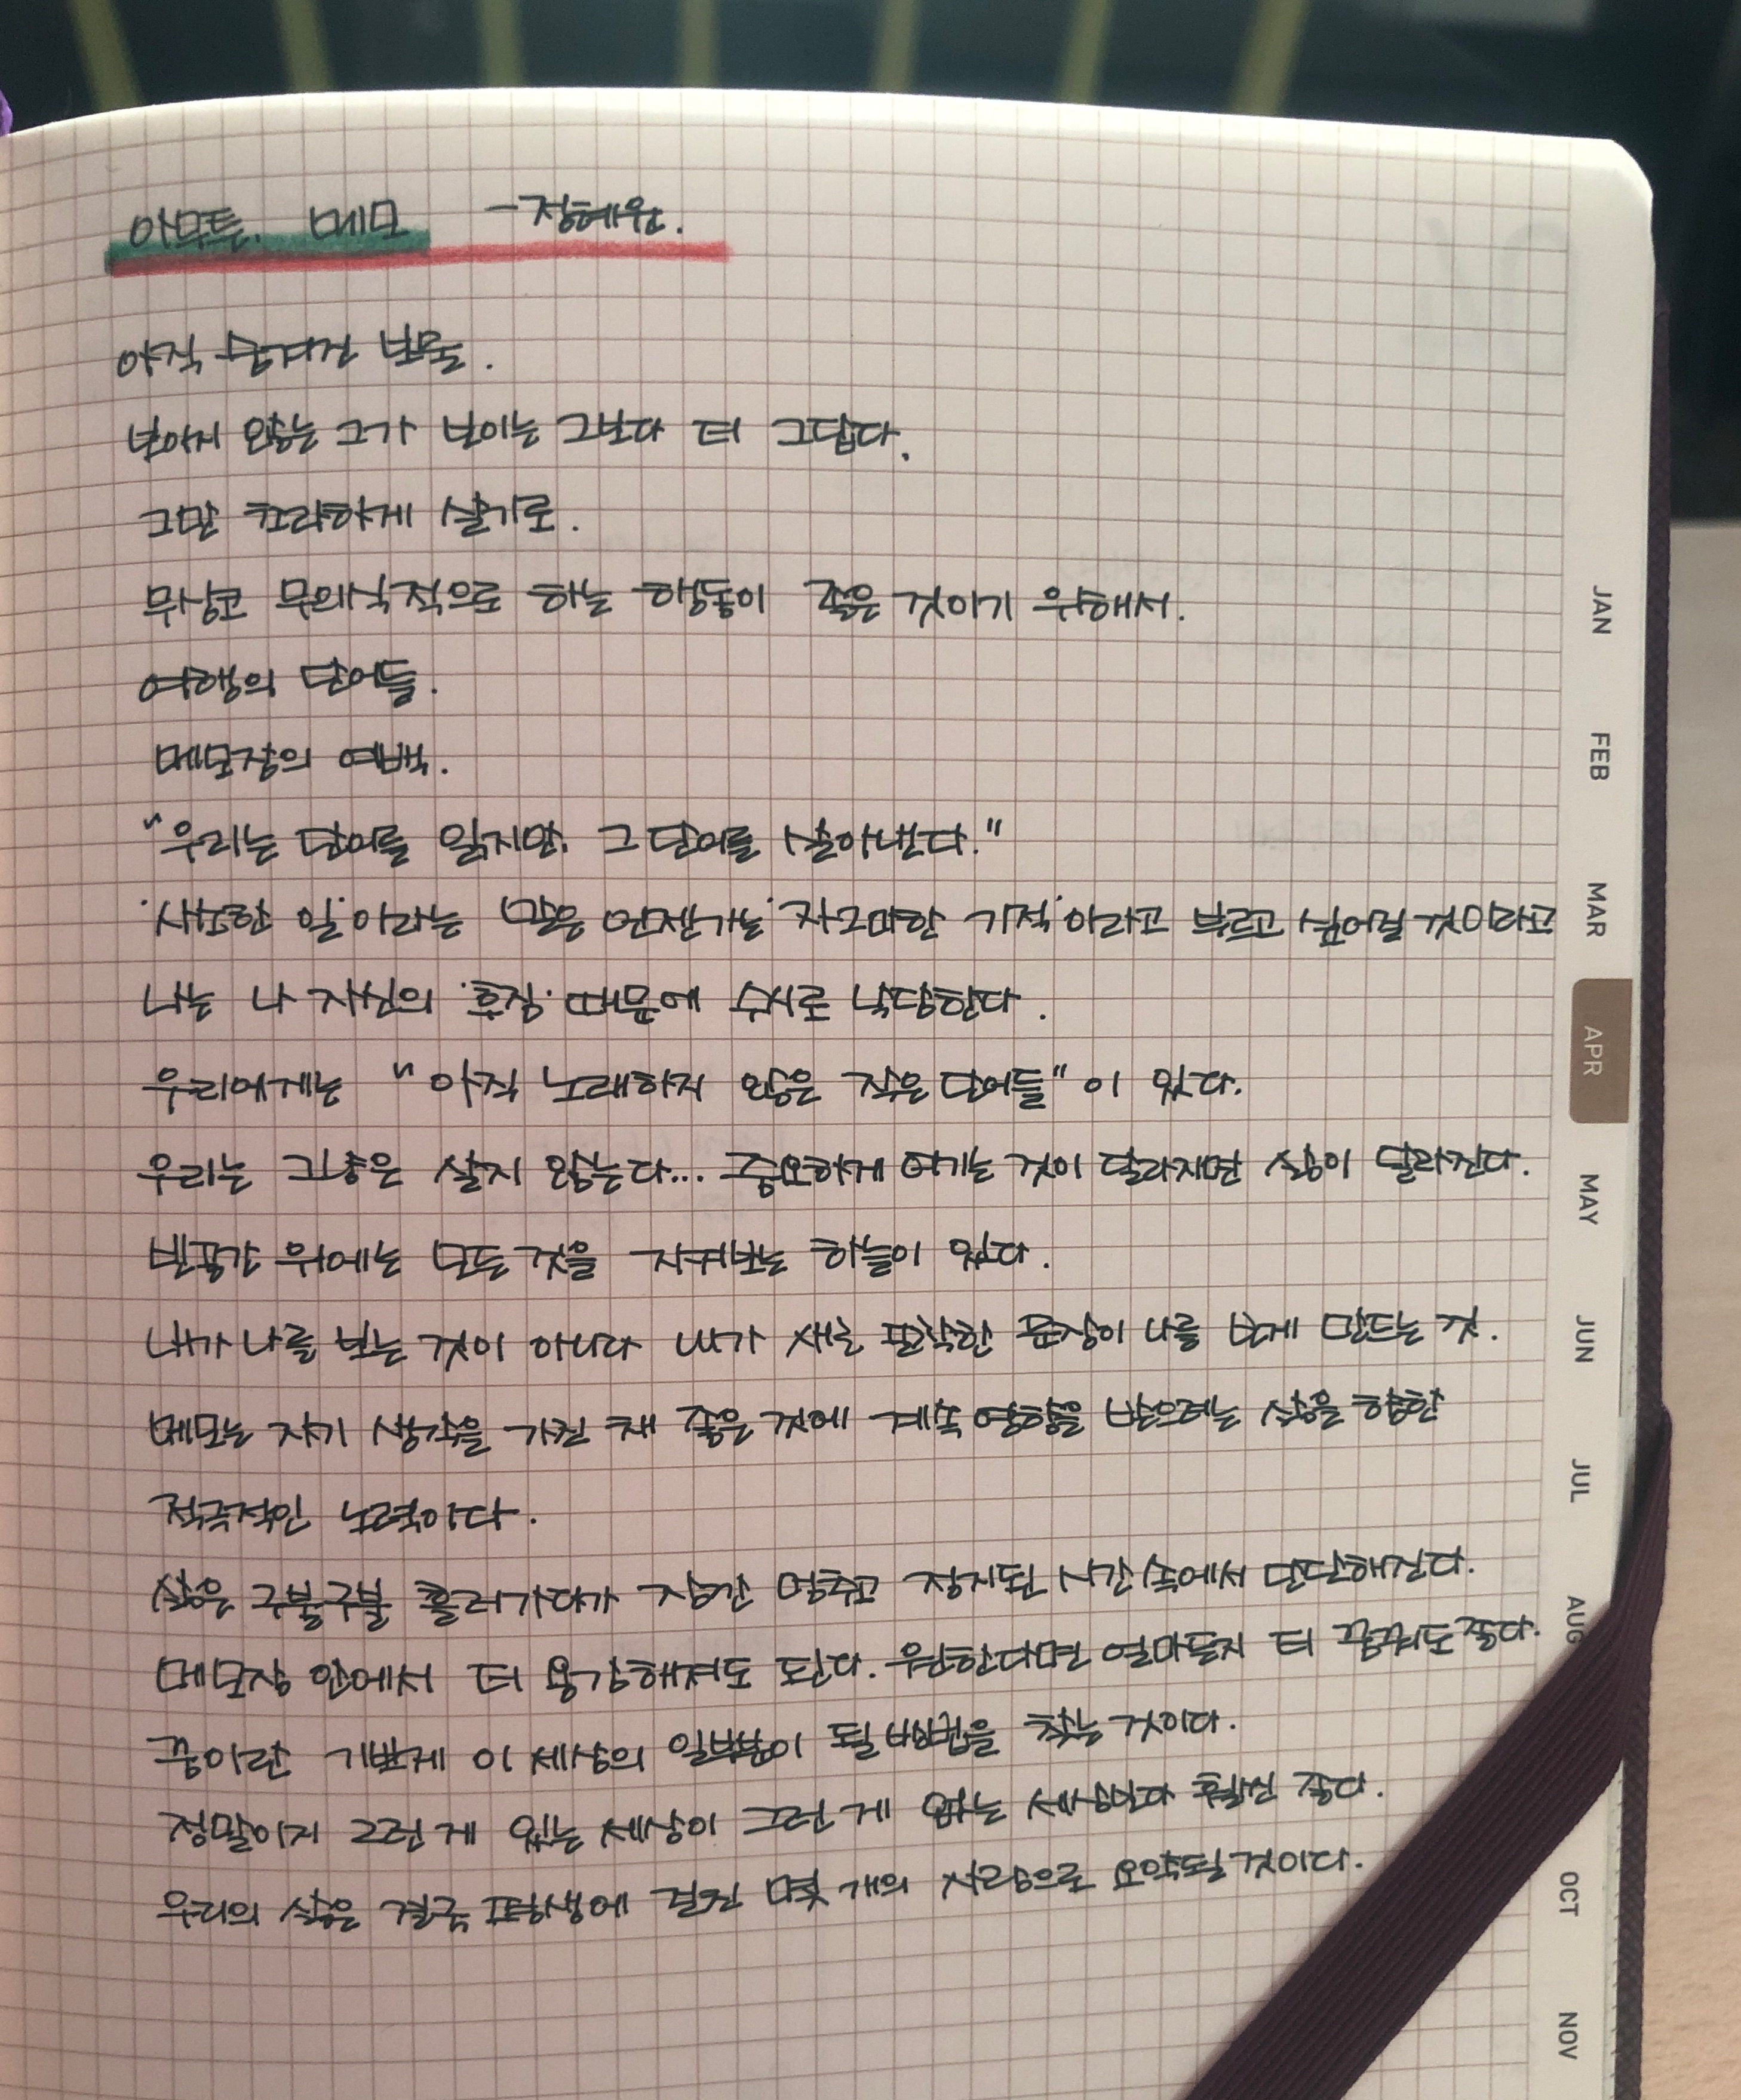 아무튼. 메모 - 정혜윤.
아직 숨겨진 보물.
보이지 않는 그가 보이는 그보다 더 그답다.
그만 초라하게 살기로.
무심코 무의식적으로 하는 행동이 좋은 것이기 위해서.
여행의 단어들.
메모장의 여백.
"우리는 단어를 읽지만. 그 단어를 살아낸다."
'사소한 일'이라는 말은 언젠가는 '자그마한 기적'이라고 부르고 싶어질 것이라고
나는 나 자신의 '후짐' 때문에 수시로 낙담한다.
우리에게는 "아직 노래하지 않은 작은 단어들"이 있다.
우리는 그냥은 살지 않는다... 중요하게 여기는 것이 달라지면 삶이 달라진다.
빈 공간 위에는 모든 것을 지켜보는 하늘이 있다.
내가 나를 보는 것이 아니다 내가 새로 포착한 문장이 나를 보게 만드는 것.
메모는 자기 생각을 가진 채 좋은 것에 계속 영향을 받으려는 삶을 향한
적극적인 노력이다.
삶은 구불구불 흘러가다가 잠깐 멈추고 정지된 시간 속에서 단단해진다.
메모장 안에서 더 용감해져도 된다. 원한다면 얼마든지 더 꿈꿔도 좋다.
꿈이란 기쁘게 이 세상의 일부분이 될 방법을 찾는 것이다.
정말이지 그런 게 있는 세상이 그런 게 없는 세상보다 훨씬 좋다.
우리의 삶은 결국 평생에 걸친 몇 개의 사람으로 요약될 것이다.
JAN
FEB
MAR
APR
MAY
JUN
JUL
AUG
OCT
NOV